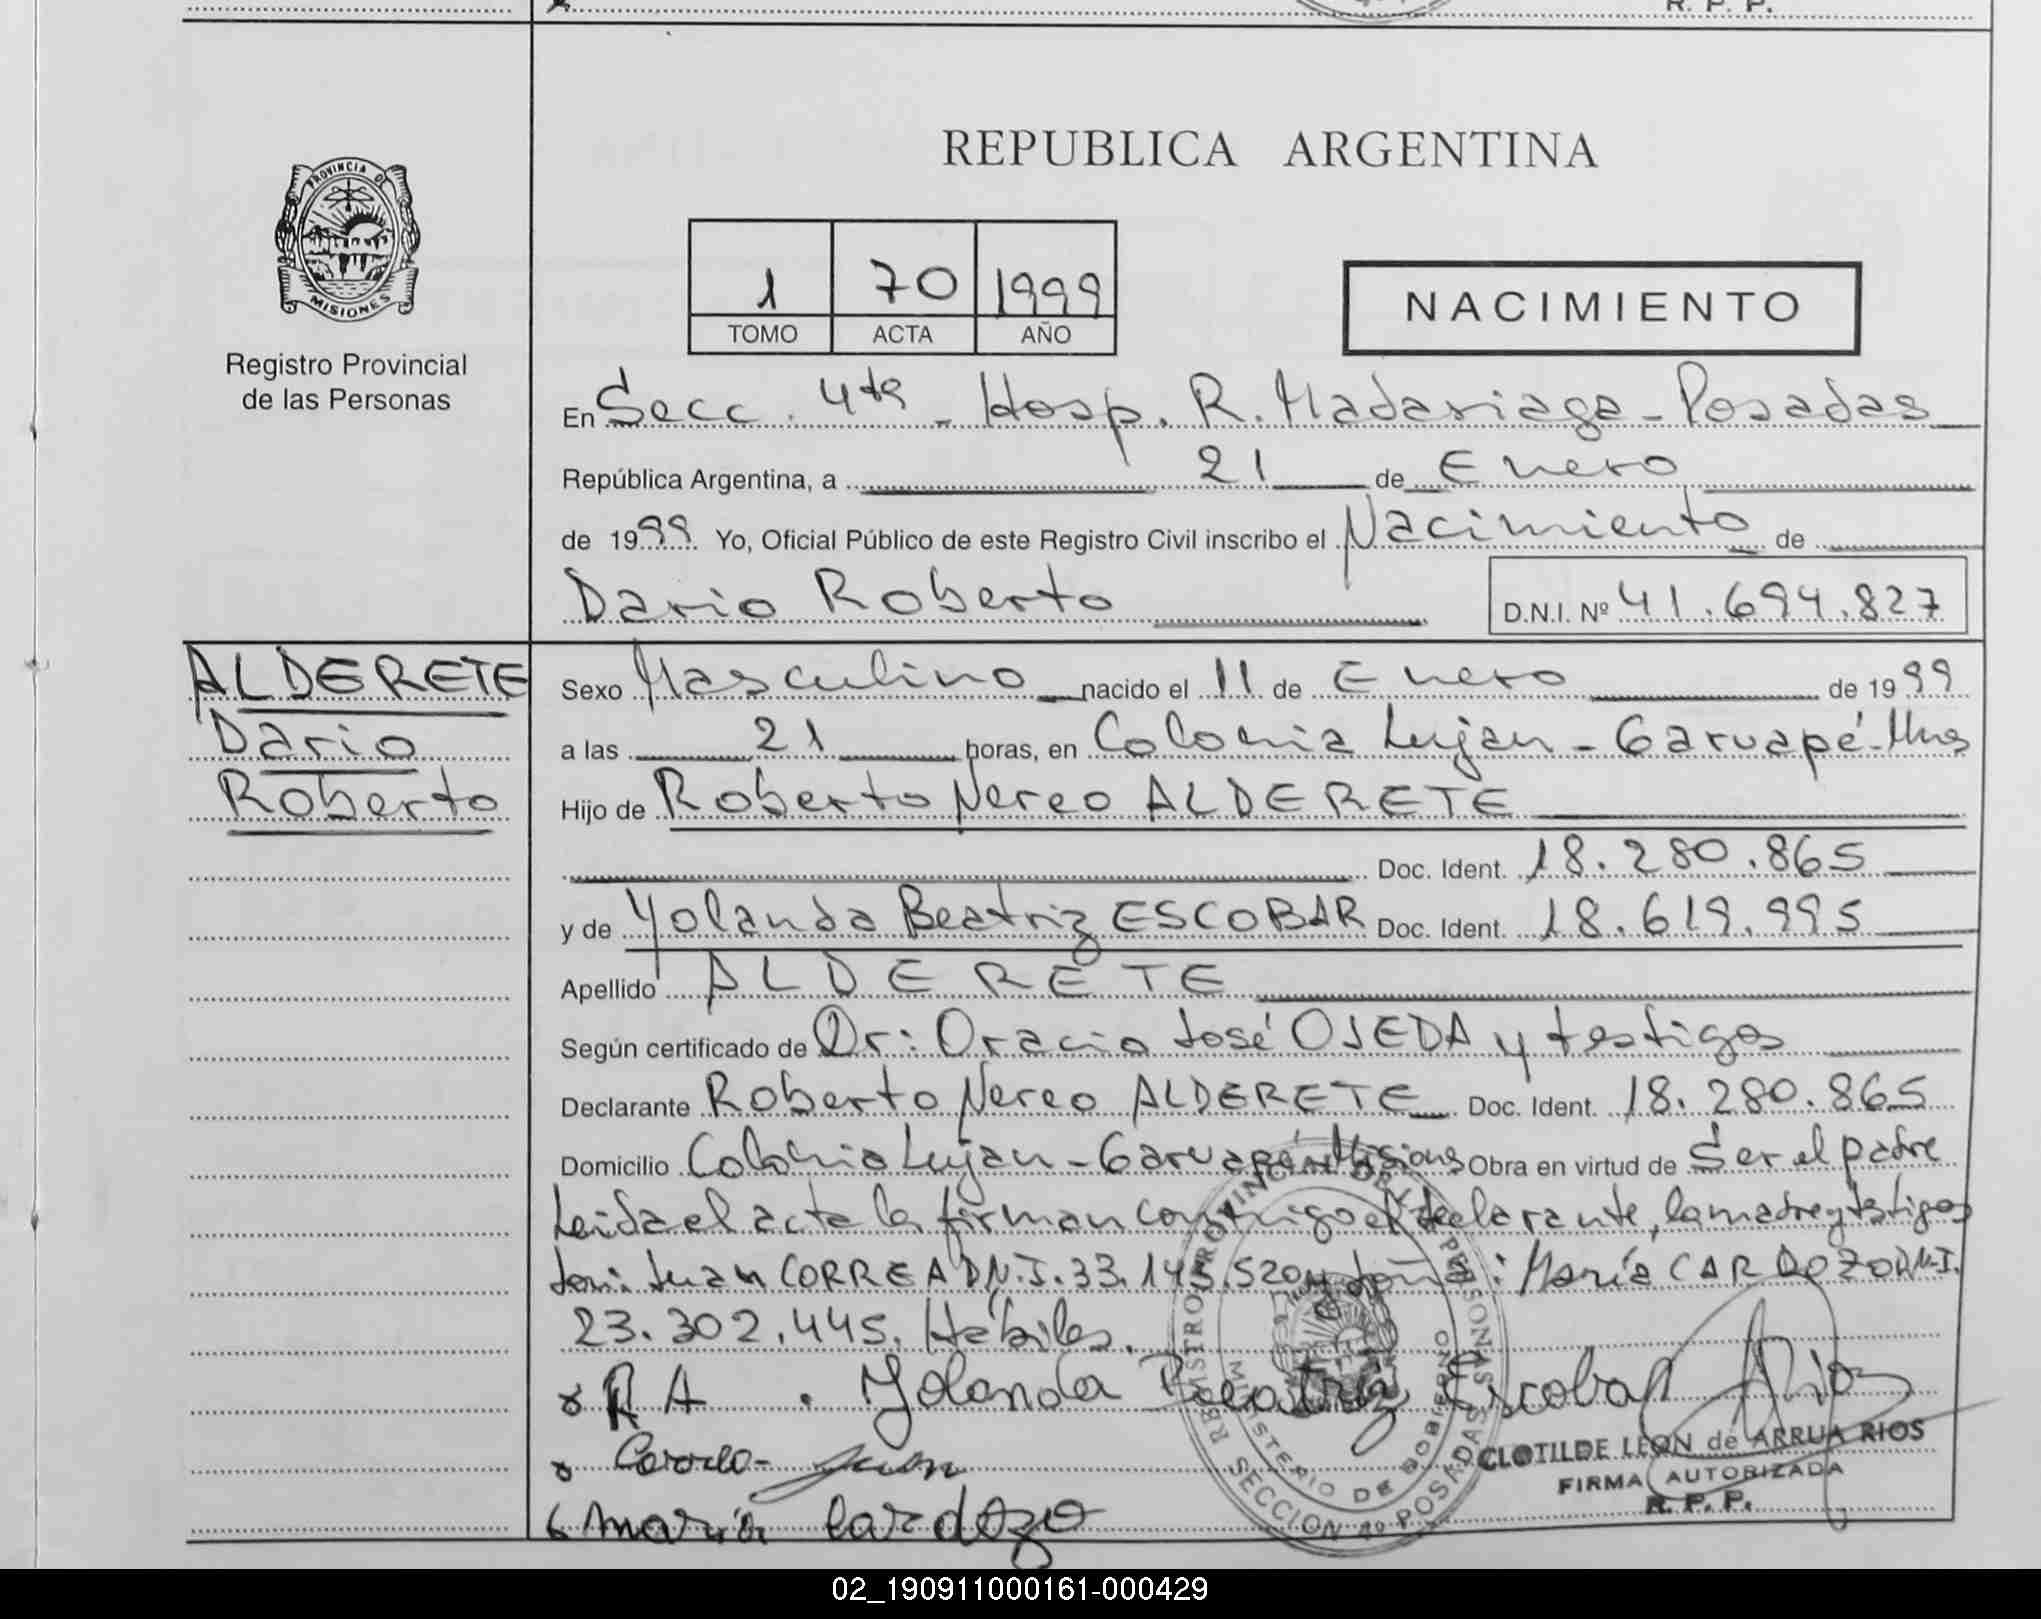 R. P. P.
PROVINCIA DE
MISIONES
Registro Provincial
de las Personas
REPUBLICA ARGENTINA
1 70 1999
TOMO ACTA AÑO
NACIMIENTO
En Secc. 4ta - Hosp. R. Madariaga - Posadas
República Argentina, a 21 de Enero
de 1999 Yo, Oficial Público de este Registro Civil inscribo el Nacimiento de
Dario Roberto D.N.I. Nº 41.694.827
ALDERETE
Dario
Roberto
Sexo Masculino nacido el 11 de Enero de 1999
a las 21 horas, en Colonia Lujan - Garuapé - Mnes
Hijo de Roberto Nereo ALDERETE
Doc. Ident. 18.280.865
y de Yolanda Beatriz ESCOBAR Doc. Ident. 18.619.995
Apellido ALDERETE
Según certificado de Dr: Oracio José OJEDA y testigos
Declarante Roberto Nereo ALDERETE Doc. Ident. 18.280.865
Domicilio Colonia Lujan - Garuapé - Misiones Obra en virtud de Ser el padre
Leida el acta la firman conmigo el declarante, la madre y testigos
don: Juan CORREA D.N.I. 33.145.520 y doña: María CARDOZO D.N.I.
23.302.445. Hábiles.
R A . Yolanda Beatriz Escobar
Correa - Juan
maria cardozo
REGISTRO PROVINCIAL DE LAS PERSONAS
MINISTERIO DE GOBIERNO
SECCION 4º POSADAS
CLOTILDE LEON de ARRUA RIOS
FIRMA AUTORIZADA
R. P. P.
02_190911000161-000429